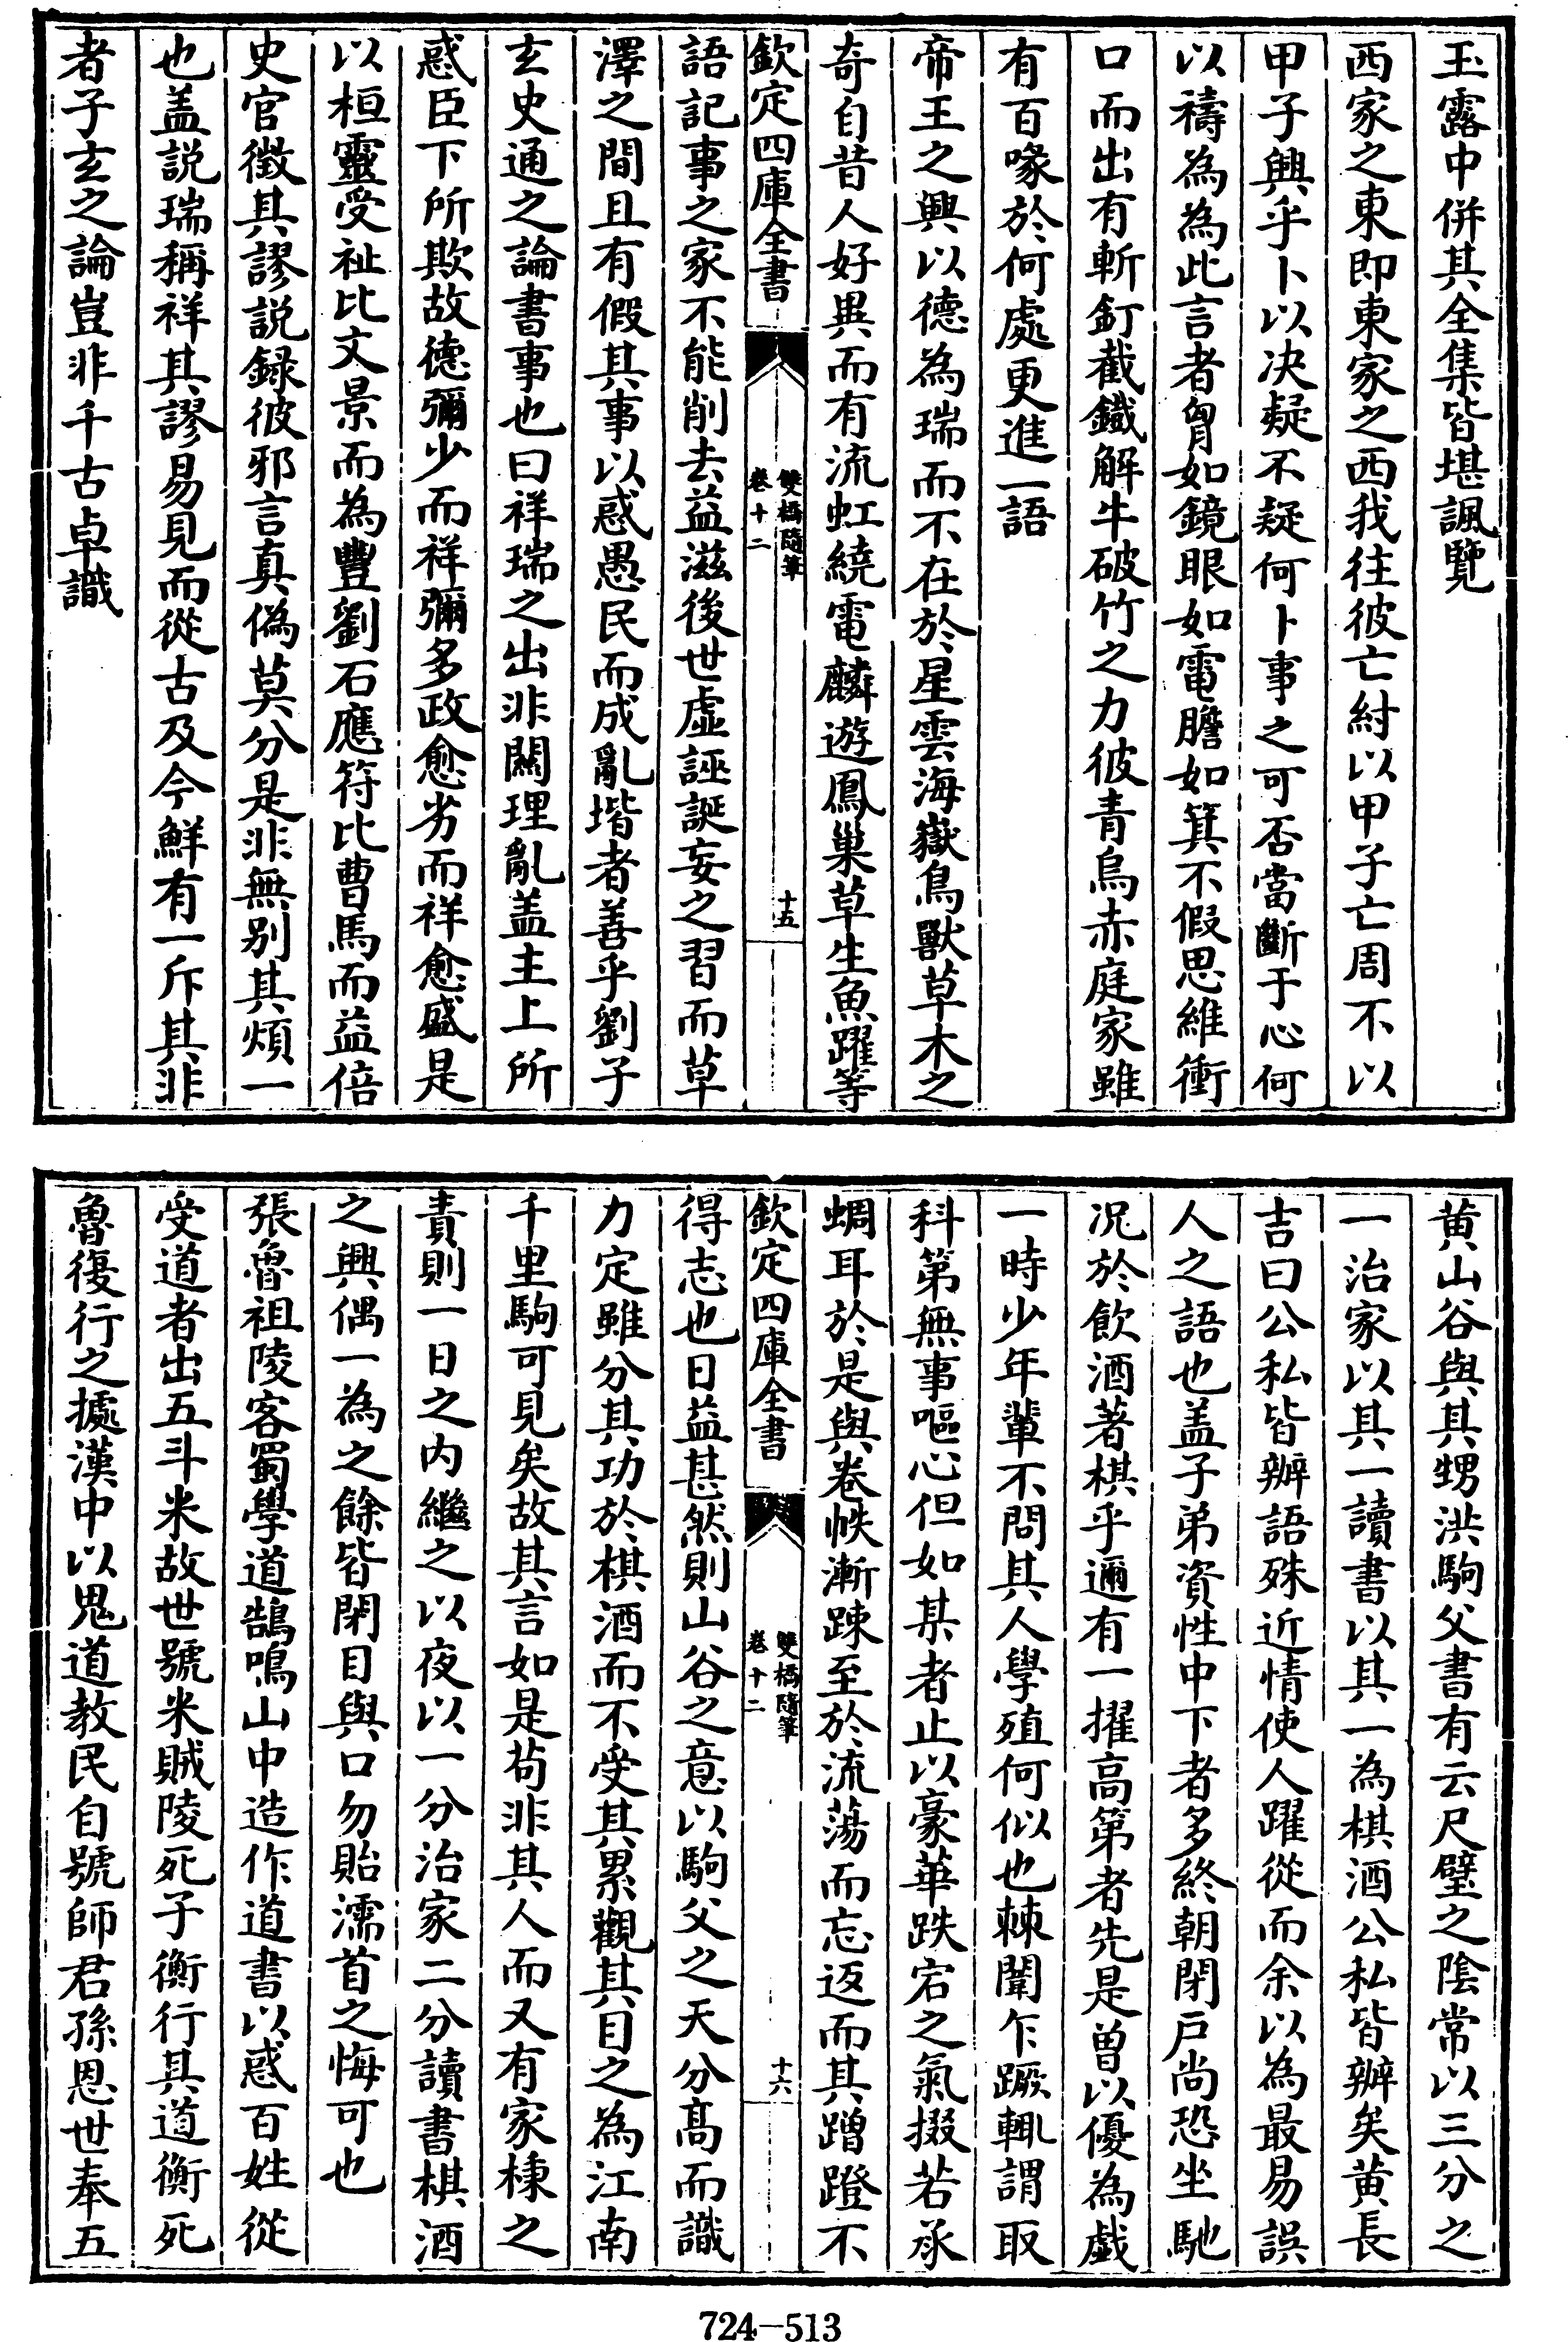 玉露中併其全集皆堪諷覽
西家之東即東家之西我往彼亡紂以甲子亡周不以
甲子興乎卜以決疑不疑何卜事之可否當斷于心何
以禱為為此言者胷如鏡眼如電膽如箕不假思維衝
口而出有斬釘截鐵解牛破竹之力彼青烏赤庭家雖
有百喙於何處更進一語
帝王之興以德為瑞而不在於星雲海嶽鳥獸草木之
奇自昔人好異而有流虹繞電麟遊鳳巢草生魚躍等
欽定四庫全書
雙橋隨筆
卷十二
十五
語記事之家不能削去益滋後世虛誣誕妄之習而草
澤之間且有假其事以惑愚民而成亂堦者善乎劉子
玄史通之論書事也曰祥瑞之出非關理亂盖主上所
惑臣下所欺故德彌少而祥彌多政愈劣而祥愈盛是
以桓靈受祉比文景而為豐劉石應符比曹馬而益倍
史官徴其謬説録彼邪言真偽莫分是非無別其煩一
也盖説瑞稱祥其謬易見而從古及今鮮有一斥其非
者子玄之論豈非千古卓識
黄山谷與其甥洪駒父書有云尺璧之陰常以三分之
一治家以其一讀書以其一為棋酒公私皆辦矣黄長
吉曰公私皆辦語殊近情使人躍從而余以為最易誤
人之語也盖子弟資性中下者多終朝閉戸尚恐坐馳
况於飲酒著棋乎邇有一擢高第者先是曽以優為戲
一時少年輩不問其人學殖何似也棘闈乍蹶輒謂取
科第無事嘔心但如某者止以豪華跌宕之氣掇若承
蜩耳於是與卷帙漸踈至於流蕩而忘返而其蹭蹬不
欽定四庫全書
雙橋隨筆
卷十二
十六
得志也日益甚然則山谷之意以駒父之天分髙而識
力定雖分其功於棋酒而不受其累觀其目之為江南
千里駒可見矣故其言如是茍非其人而又有家棟之
責則一日之内繼之以夜以一分治家二分讀書棋酒
之興偶一為之餘皆閉目與口勿貽濡首之悔可也
張魯祖陵客蜀學道鵠鳴山中造作道書以惑百姓從
受道者出五斗米故世號米賊陵死子衡行其道衡死
魯復行之據漢中以鬼道教民自號師君孫恩世奉五
724—513